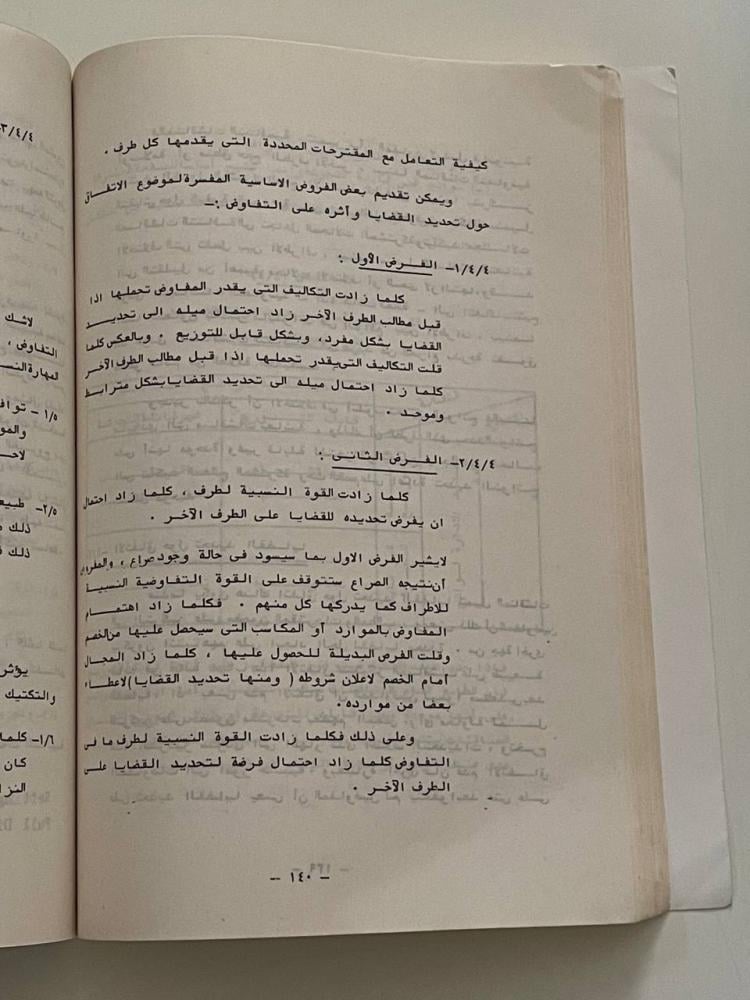 كيفية التعامل مع المقترحات المحددة التى يقدمها كل طرف .
ويمكن تقديم بعض الفروض الاساسية المفسرة لموضوع الاتفاق
حول تحديد القضايا وأثره على التفاوض :-
١/٤/٤- الفرض الأول :
كلما زادت التكاليف التى يقدر المفاوض تحملها اذا
قبل مطالب الطرف الآخر زاد احتمال ميله الى تحديد
القضايا بشكل مفرد، وبشكل قابل للتوزيع . وبالعكس كلما
قلت التكاليف التى يقدر تحملها اذا قبل مطالب الطرف الآخر
كلما زاد احتمال ميله الى تحديد القضايا بشكل مترابط
وموحد .
٢/٤/٤- الفرض الثانى :
كلما زادت القوة النسبية لطرف ، كلما زاد احتمال
ان يفرض تحديده للقضايا على الطرف الآخر .
لايشير الفرض الاول بما سيسود فى حالة وجود صراع ، والمفروض
أن نتيجه الصراع ستتوقف على القوة التفاوضية النسبية
للاطراف كما يدركها كل منهم . فكلما زاد اهتمام
المفاوض بالموارد أو المكاسب التى سيحصل عليها من الخصم
وقلت الفرص البديلة للحصول عليها ، كلما زاد المجال
أمام الخصم لاعلان شروطه ( ومنها تحديد القضايا) لاعطاء
بعضا من موارده .
وعلى ذلك فكلما زادت القوة النسبية لطرف ما فى
التفاوض كلما زاد احتمال فرضة لتحديد القضايا على
الطرف الآخر .
- ١٤٠ -
٣/٤/٤
لاشك
التفاوض ،
المهارة النس
١/٥ - توافـ
والمو
لاحـ
٢/٥- طبيع
ذلك
ذلك
يؤثر
والتكتيك
١/٦- كلما
كان
النزا